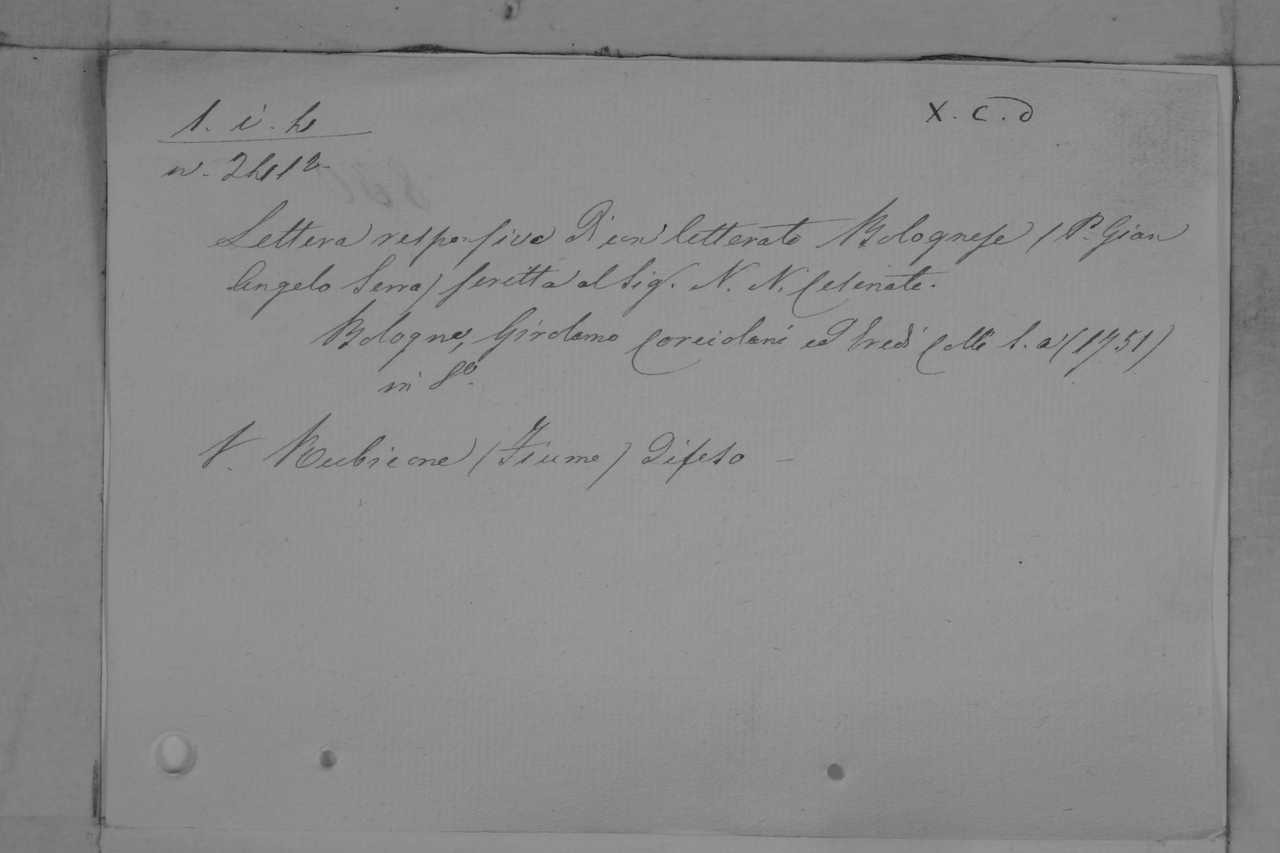 X. C. d
Lettera responsiva di un letterato Bolognese (P. Gian
Angelo Serra) scritta al Sig. N. N. Cesenate.
Bologna, Girolamo Corciolani ed Eredi Colli S. a (1751)
in 8º.
V. Rubicone (Fiume) difeso –